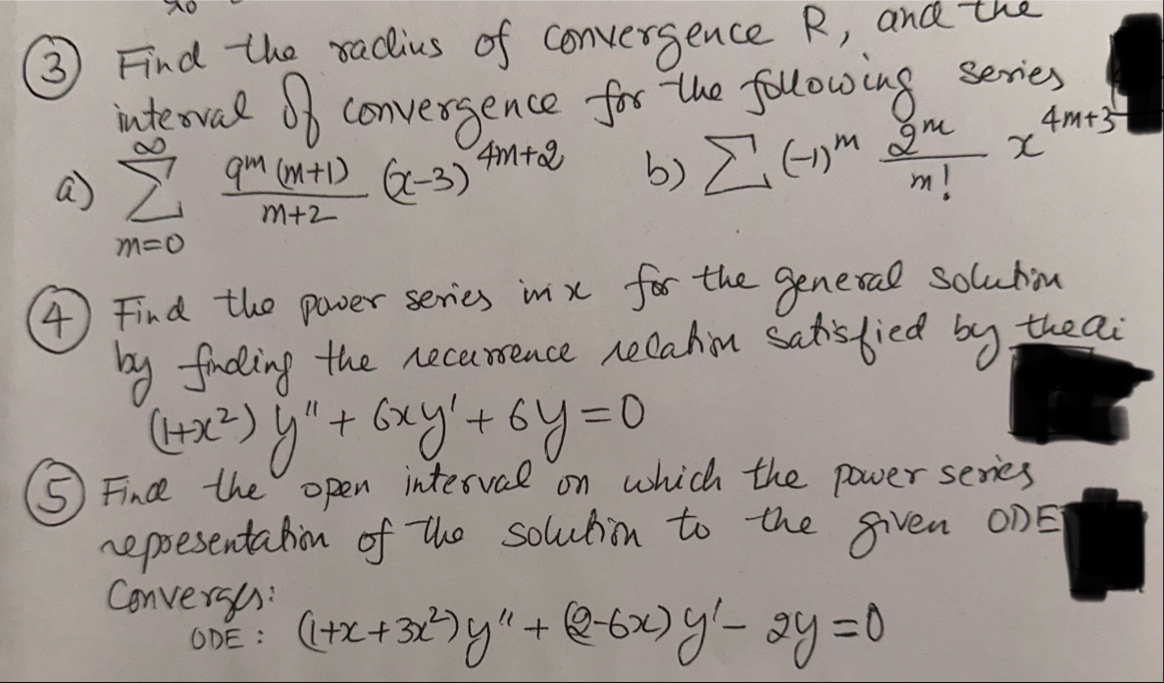 ③ Find the radius of convergence R, and the
interval of convergence for the following series
a) ∑_{m=0}^{∞} \frac{9^m (m+1)}{m+2} (x-3)^{4m+2} b) ∑ (-1)^m \frac{2^m}{m!} x^{4m+3}
④ Find the power series in x for the general solution
by finding the recurrence relation satisfied by the ai
(1+x²) y'' + 6xy' + 6y = 0
⑤ Find the open interval on which the power series
representation of the solution to the given ODE
Converges:
ODE : (1+x+3x²) y'' + (2-6x) y' - 2y = 0